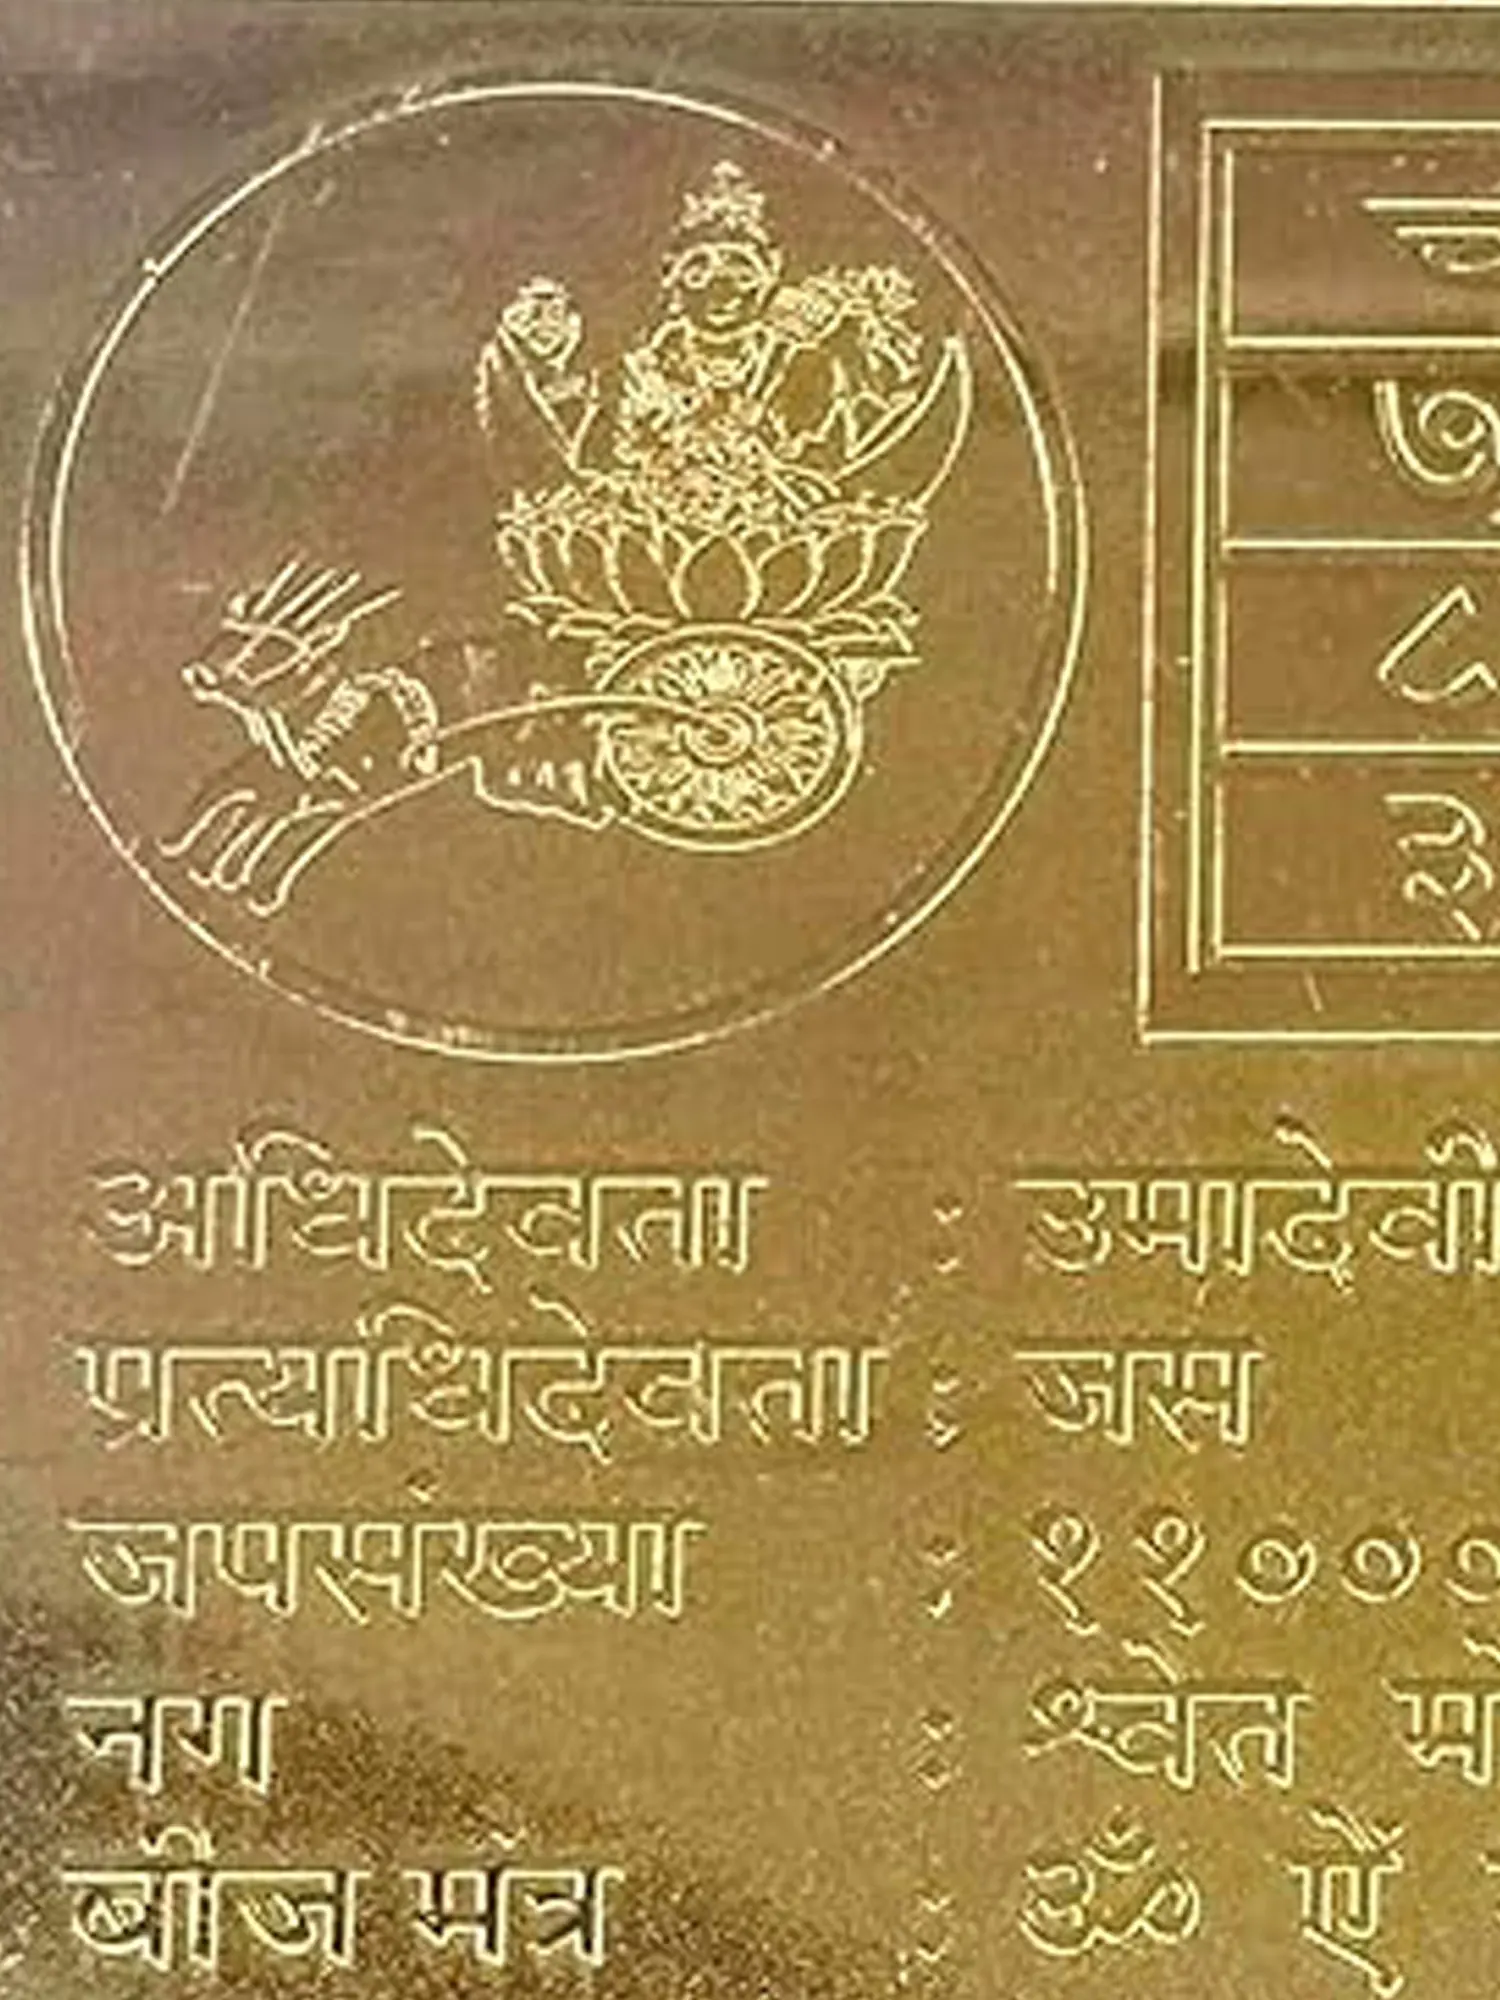 अधिदेवता : उमादेवी
प्रत्यधिदेवता : जस
जपसंख्या : ११०००
नग : श्वेत
बीज मंत्र : ॐ ऐं